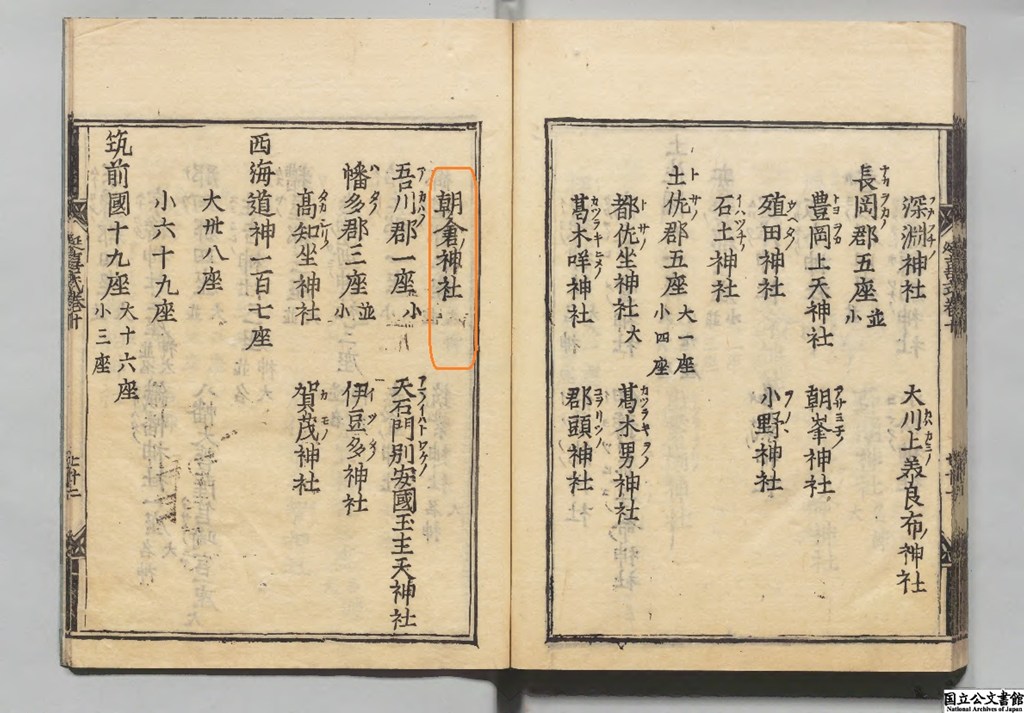 深淵神社 大川上美良布神社
長岡郡五座 並小
豊岡上天神社 朝峯神社
殖田神社 小野神社
石土神社
土佐郡五座 大一座 小四座
都佐坐神社 大 葛木男神社
葛木咩神社 郡頭神社
朝倉神社
吾川郡一座 小 天石門別安國玉主天神社
幡多郡三座 並小 伊豆多神社
髙知坐神社 賀茂神社
西海道神一百七座
大卅八座
小六十九座
筑前國十九座 大十六座 小三座
国立公文書館
National Archives of Japan